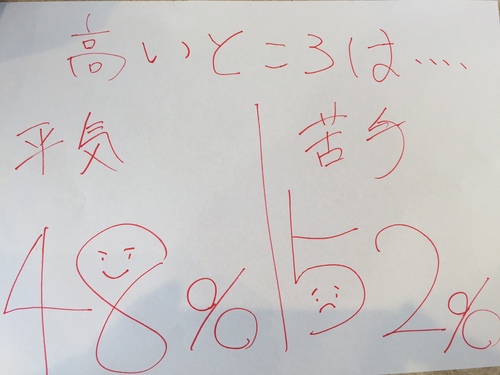 高いところは....
平気 苦手
48% 52%